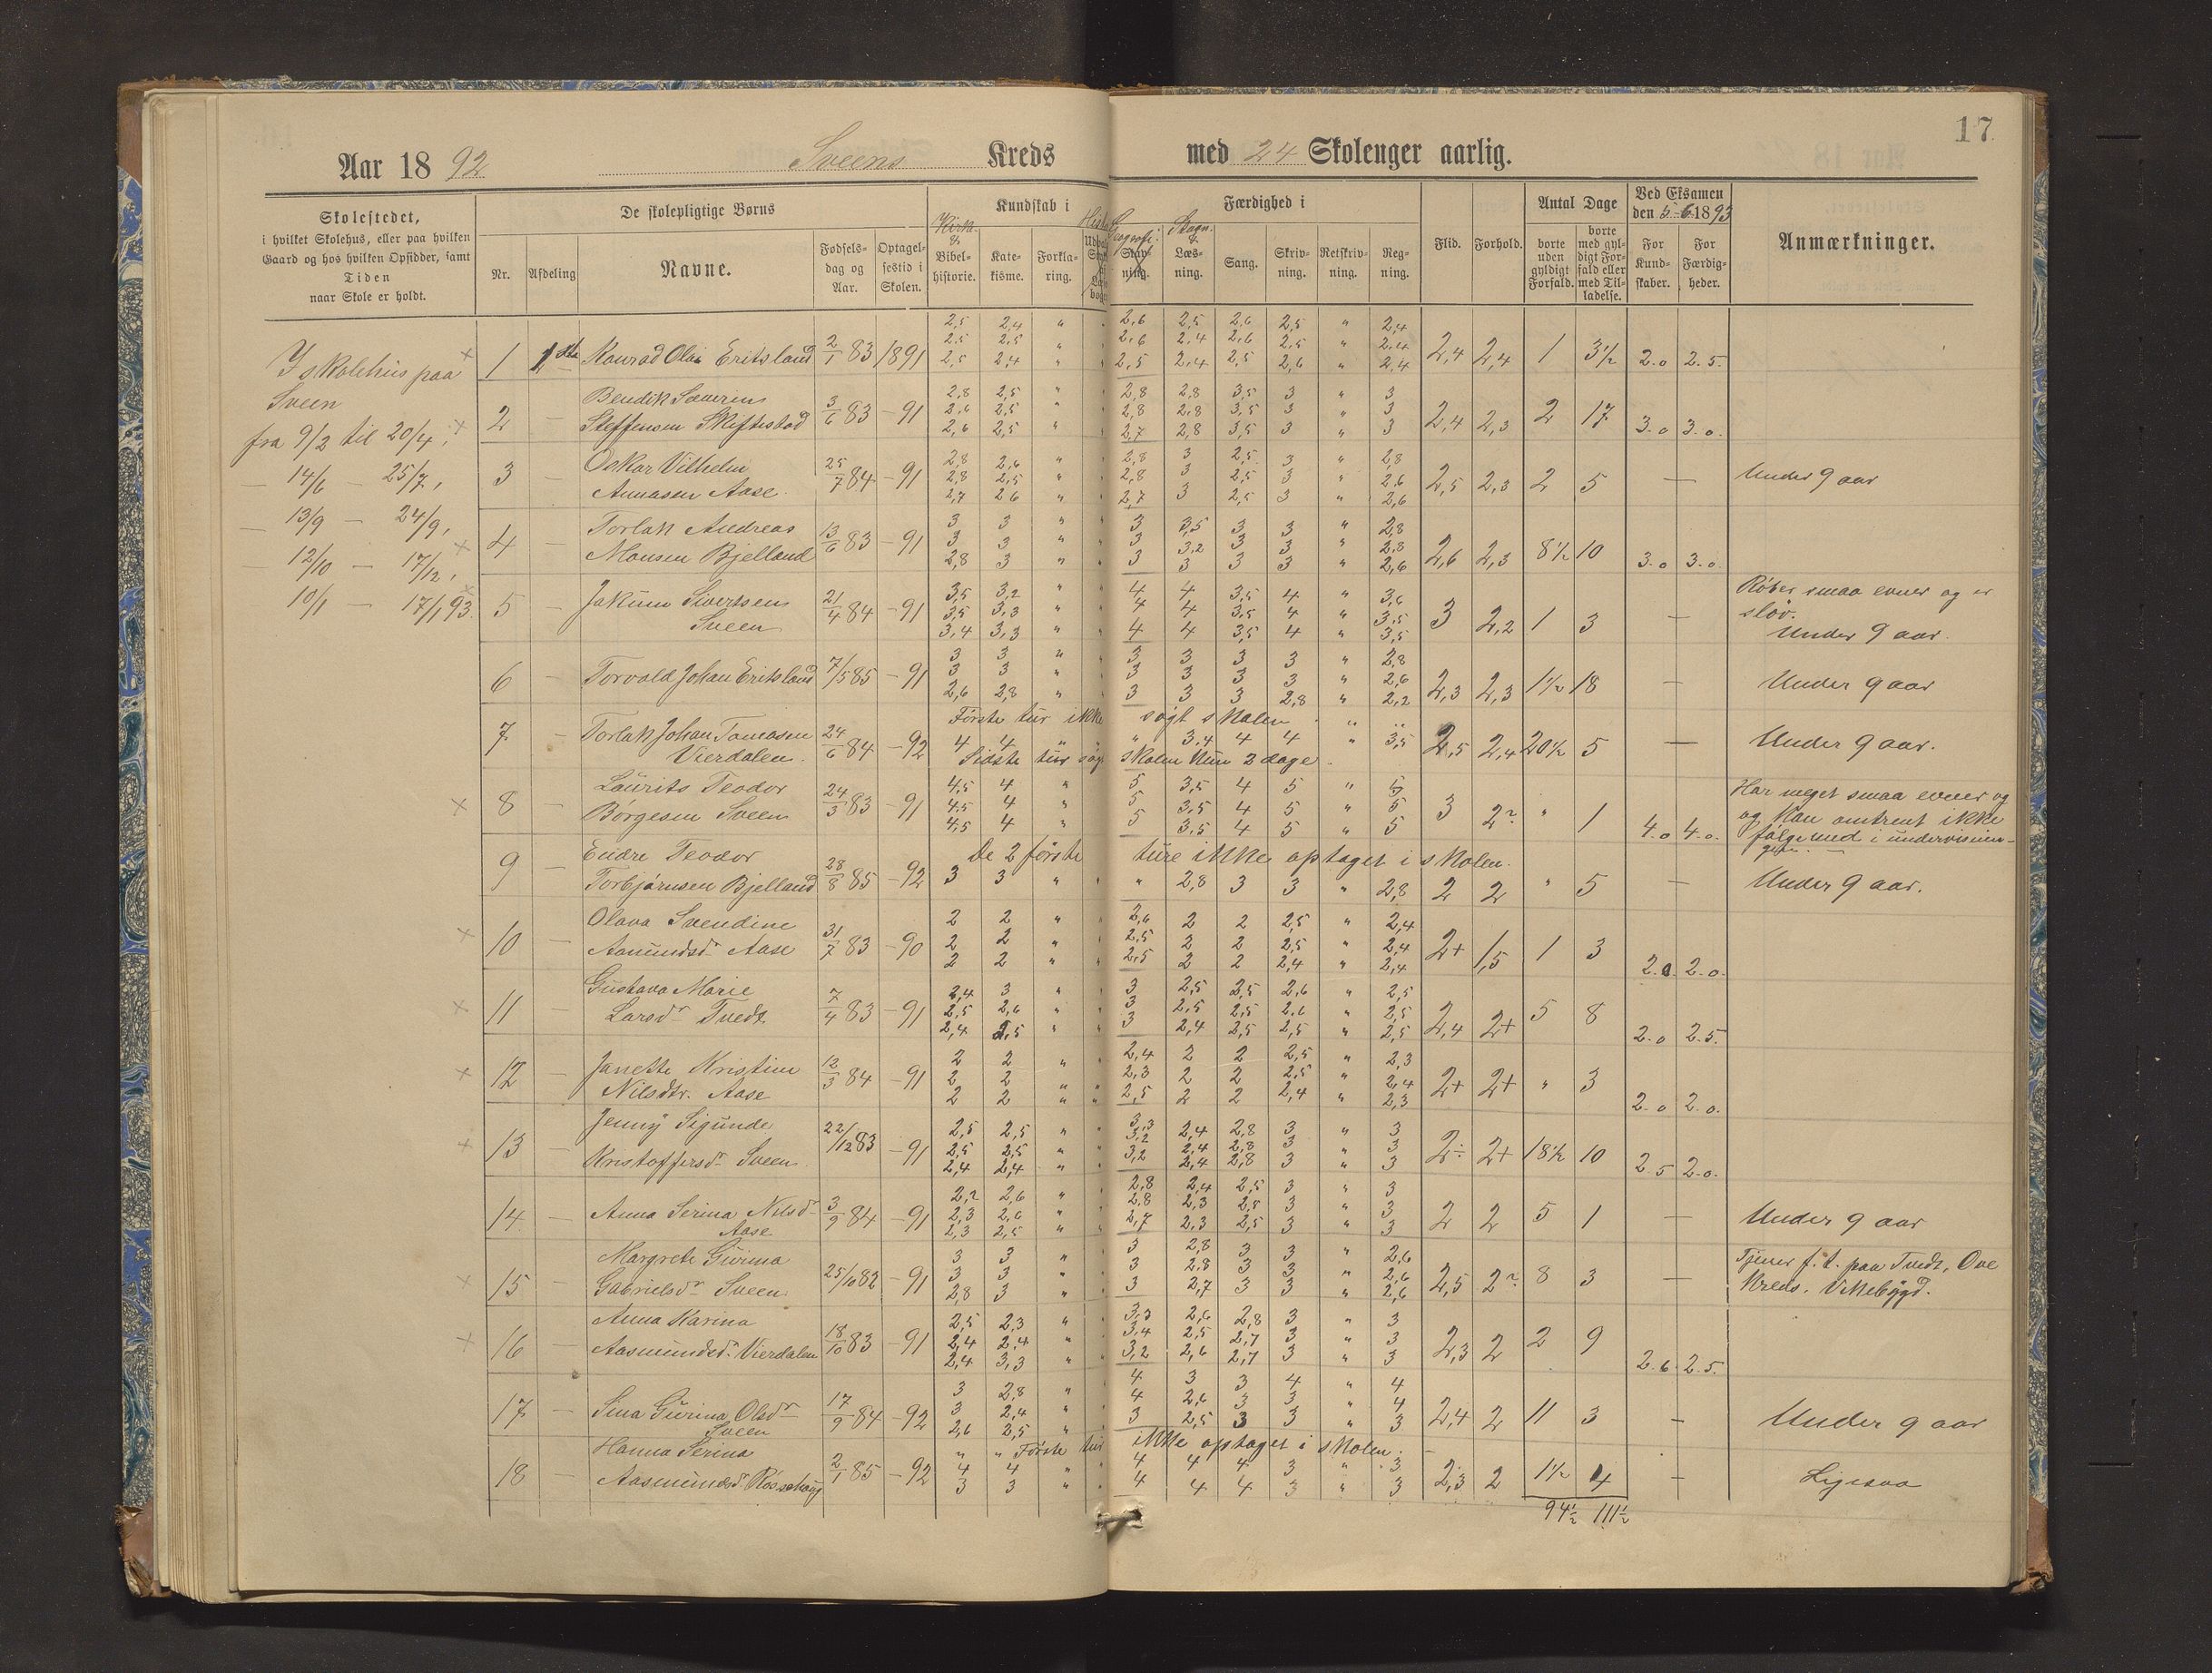 17
Aar 1892 Sveens Kreds med 24 Skoleuger aarlig.
Skolestedet,
i hvilket Skolehus, eller paa hvilken
Gaard og hos hvilken Opsidder, samt
Tiden
naar Skole er holdt.
De skolepligtige Børns
Nr. Afdeling Navne. Fødselsdag og Aar. Optagelsestid i Skolen.
Kundskab i
Kirk. & Bibelhistorie. Katekisme. Forklaring.
Færdighed i
Geografi. Stavning. Læsning. Sang. Skrivning. Retskrivning. Regning.
Flid. Forhold.
Antal Dage
borte uden gyldigt Forfald. borte med gyldigt Forfald eller med Tilladelse.
Ved Eksamen
den 5-6 1893
For Kundskaber. For Færdigheder.
Anmærkninger.
I skolehus paa
Sveen
fra 9/3 til 20/4,
— 14/6 — 25/7,
— 13/9 — 24/9,
12/10 — 17/12,
10/1 — 17/1 93.
2,5 2,4 " 2,6 2,5 2,6 2,5 " 2,4
2,5 2,5 " 2,6 2,4 2,6 2,5 " 2,4
1 1ste Konrad Olai Eritsland 2/1 83 1891 2,5 2,4 " 2,5 2,4 2,5 2,6 " 2,4 2,4 2,4 1 3½ 2.0 2.5.
Bendik Severens 2,8 2,5 " 2,8 2,8 3,5 3 " 3
2 — Steffensen Skiftestad 3/6 83 — 91 2,6 2,5 " 2,8 2,8 3,5 3 " 3 2,4 2,3 2 17 3.0 3.0.
2,6 2,5 " 2,7 2,8 3,5 3 " 3
Oskar Vilhelm 2,8 2,6 " 2,8 3 2,5 3 " 2,8
3 — Aanasen Aase 25/7 84 — 91 2,8 2,5 " 2,8 3 2,5 3 " 2,6 2,5 2,3 2 5 — Under 9 aar
2,7 2,6 " 2,7 3 2,5 3 " 2,6
Torlak Andreas 3 3 " 3 3,5 3 3 " 2,8
4 — Monsen Bjelland 13/6 83 — 91 3 3 " 3 3,2 3 3 " 2,8 2,6 2,3 8½ 10 3.0 3.0.
2,8 3 " 3 3 3 3 " 2,6
Jakum Sivertsen 3,5 3,2 " 4 4 3,5 4 " 3,6
5 — Sveen 21/4 84 — 91 3,5 3,3 " 4 4 3,5 4 " 3,5 3 2,2 1 3 —
3,4 3,3 " 4 4 3,5 4 " 3,5
smaa evner og er
sløv.
Under 9 aar.
3 3 " 3 3 3 3 " 2,8
6 — Torvald Johan Eritsland 7/5 85 — 91 3 3 " 3 3 3 3 " 2,6 2,3 2,3 1½ 18 — Under 9 aar
2,6 2,8 " 3 3 3 2,8 " 2,2
Første tur ikke søgt skolen
7 — Torlak Johan Tomasen 24/6 84 — 92 4 4 " " 3,4 4 4 " 3,5 2,5 2,4 20½ 5 — Under 9 aar.
Vierdalen. Sidste tur søgt skolen kun 2 dage.
Laurits Teodor 4,5 4 " 5 3,5 4 5 " 5
8 — Børgesen Sveen 24/3 83 — 91 4,5 4 " 5 3,5 4 5 " 5 3 2? " 1 4.0 4.0.
4,5 4 " 5 3,5 4 5 " 5
Har meget smaa evner og
og kan omtrent ikke
følge med i undervisnin-
gen.
Endre Teodor De 2 første ture ikke optaget i skolen.
9 Torbjørnsen Bjelland 28/8 85 — 92 3 3 " " 2,8 3 3 " 2,8 2 2 " 5 — Under 9 aar.
Olava Svendine 2 2 " 2,6 2 2 2,5 " 2,4
10 — Aamundsdr Aase 31/7 83 — 90 2 2 " 2,5 2 2 2,5 " 2,4 2+ 1,5 1 3 2.0. 2.0.
2 2 " 2,5 2 2 2,4 " 2,4
Gustava Marie 2,4 3 " 3 2,5 2,5 2,6 " 2,5
11 — Larsdr Tvedt 7/4 83 — 91 2,5 2,6 " 3 2,5 2,5 2,6 " 2,5 2,4 2+ 5 8 2.0 2.5.
2,4 2,5 " 3 2,4 2,5 2,5 " 2,5
Janette Kristine 2 2 " 2,4 2 2 2,5 " 2,3
12 — Nilsdtr. Aase 12/3 84 — 91 2 2 " 2,3 2 2 2,5 " 2,4 2+ 2+ " 3 2.0 2.0.
2 2 " 2,5 2 2 2,4 " 2,3
Jenny Sigunde 2,5 2,5 " 3,3 2,4 2,8 3 " 3
13 — Kristoffersdr Sveen 22/12 83 — 91 2,5 2,5 " 3,2 2,4 2,8 3 " 3 2÷ 2+ 18½ 10 2.5 2.0.
2,4 2,4 " 3,2 2,4 2,8 3 " 3
2,2 2,6 " 2,8 2,4 2,5 3 " 3
14 — Anna Serina Nilsdr 3/9 84 — 91 2,3 2,6 " 2,8 2,3 2,5 3 " 3 2 2 5 1 — Under 9 aar
Aase 2,3 2,5 " 2,7 2,3 2,5 3 " 3
Margrete Gurina 3 3 " 3 2,8 3 3 " 2,6
15 — Gabrielsdr Sveen 25/10 82 — 91 3 3 " 3 2,8 3 3 " 2,6 2,5 2? 8 3 —
2,8 3 " 3 2,7 3 3 " 2,6
Tjener f. t. paa Tvedt, Ove
Kreds. Vikebygd.
Anna Karina 2,5 2,3 " 3,3 2,6 2,8 3 " 3
16 — Aasmundsdr. Vierdalen 18/10 83 — 91 2,4 2,4 " 3,4 2,5 2,7 3 " 3 2,3 2 2 9 2.6 2.5.
2,4 3,3 " 3,2 2,6 2,7 3 " 3
3 2,8 " 4 3 3 4 " 4
17 — Sina Gurina Olsdr 17/9 84 — 92 3 2,4 " 4 2,6 3 3 " 4 2,4 2 11 3 — Under 9 aar
Sveen 2,6 2,5 " 3 2,5 3 3 " 3
Hanna Serina " " Første tur ikke optaget i skolen.
18 — Aasmundsdr. 2/1 85 — 92 4 4 " 4 4 4 3 " 3 2,3 2 1½ 4 — Ligesaa
3 3 " 4 4 4 3 " 3
94½ 111½